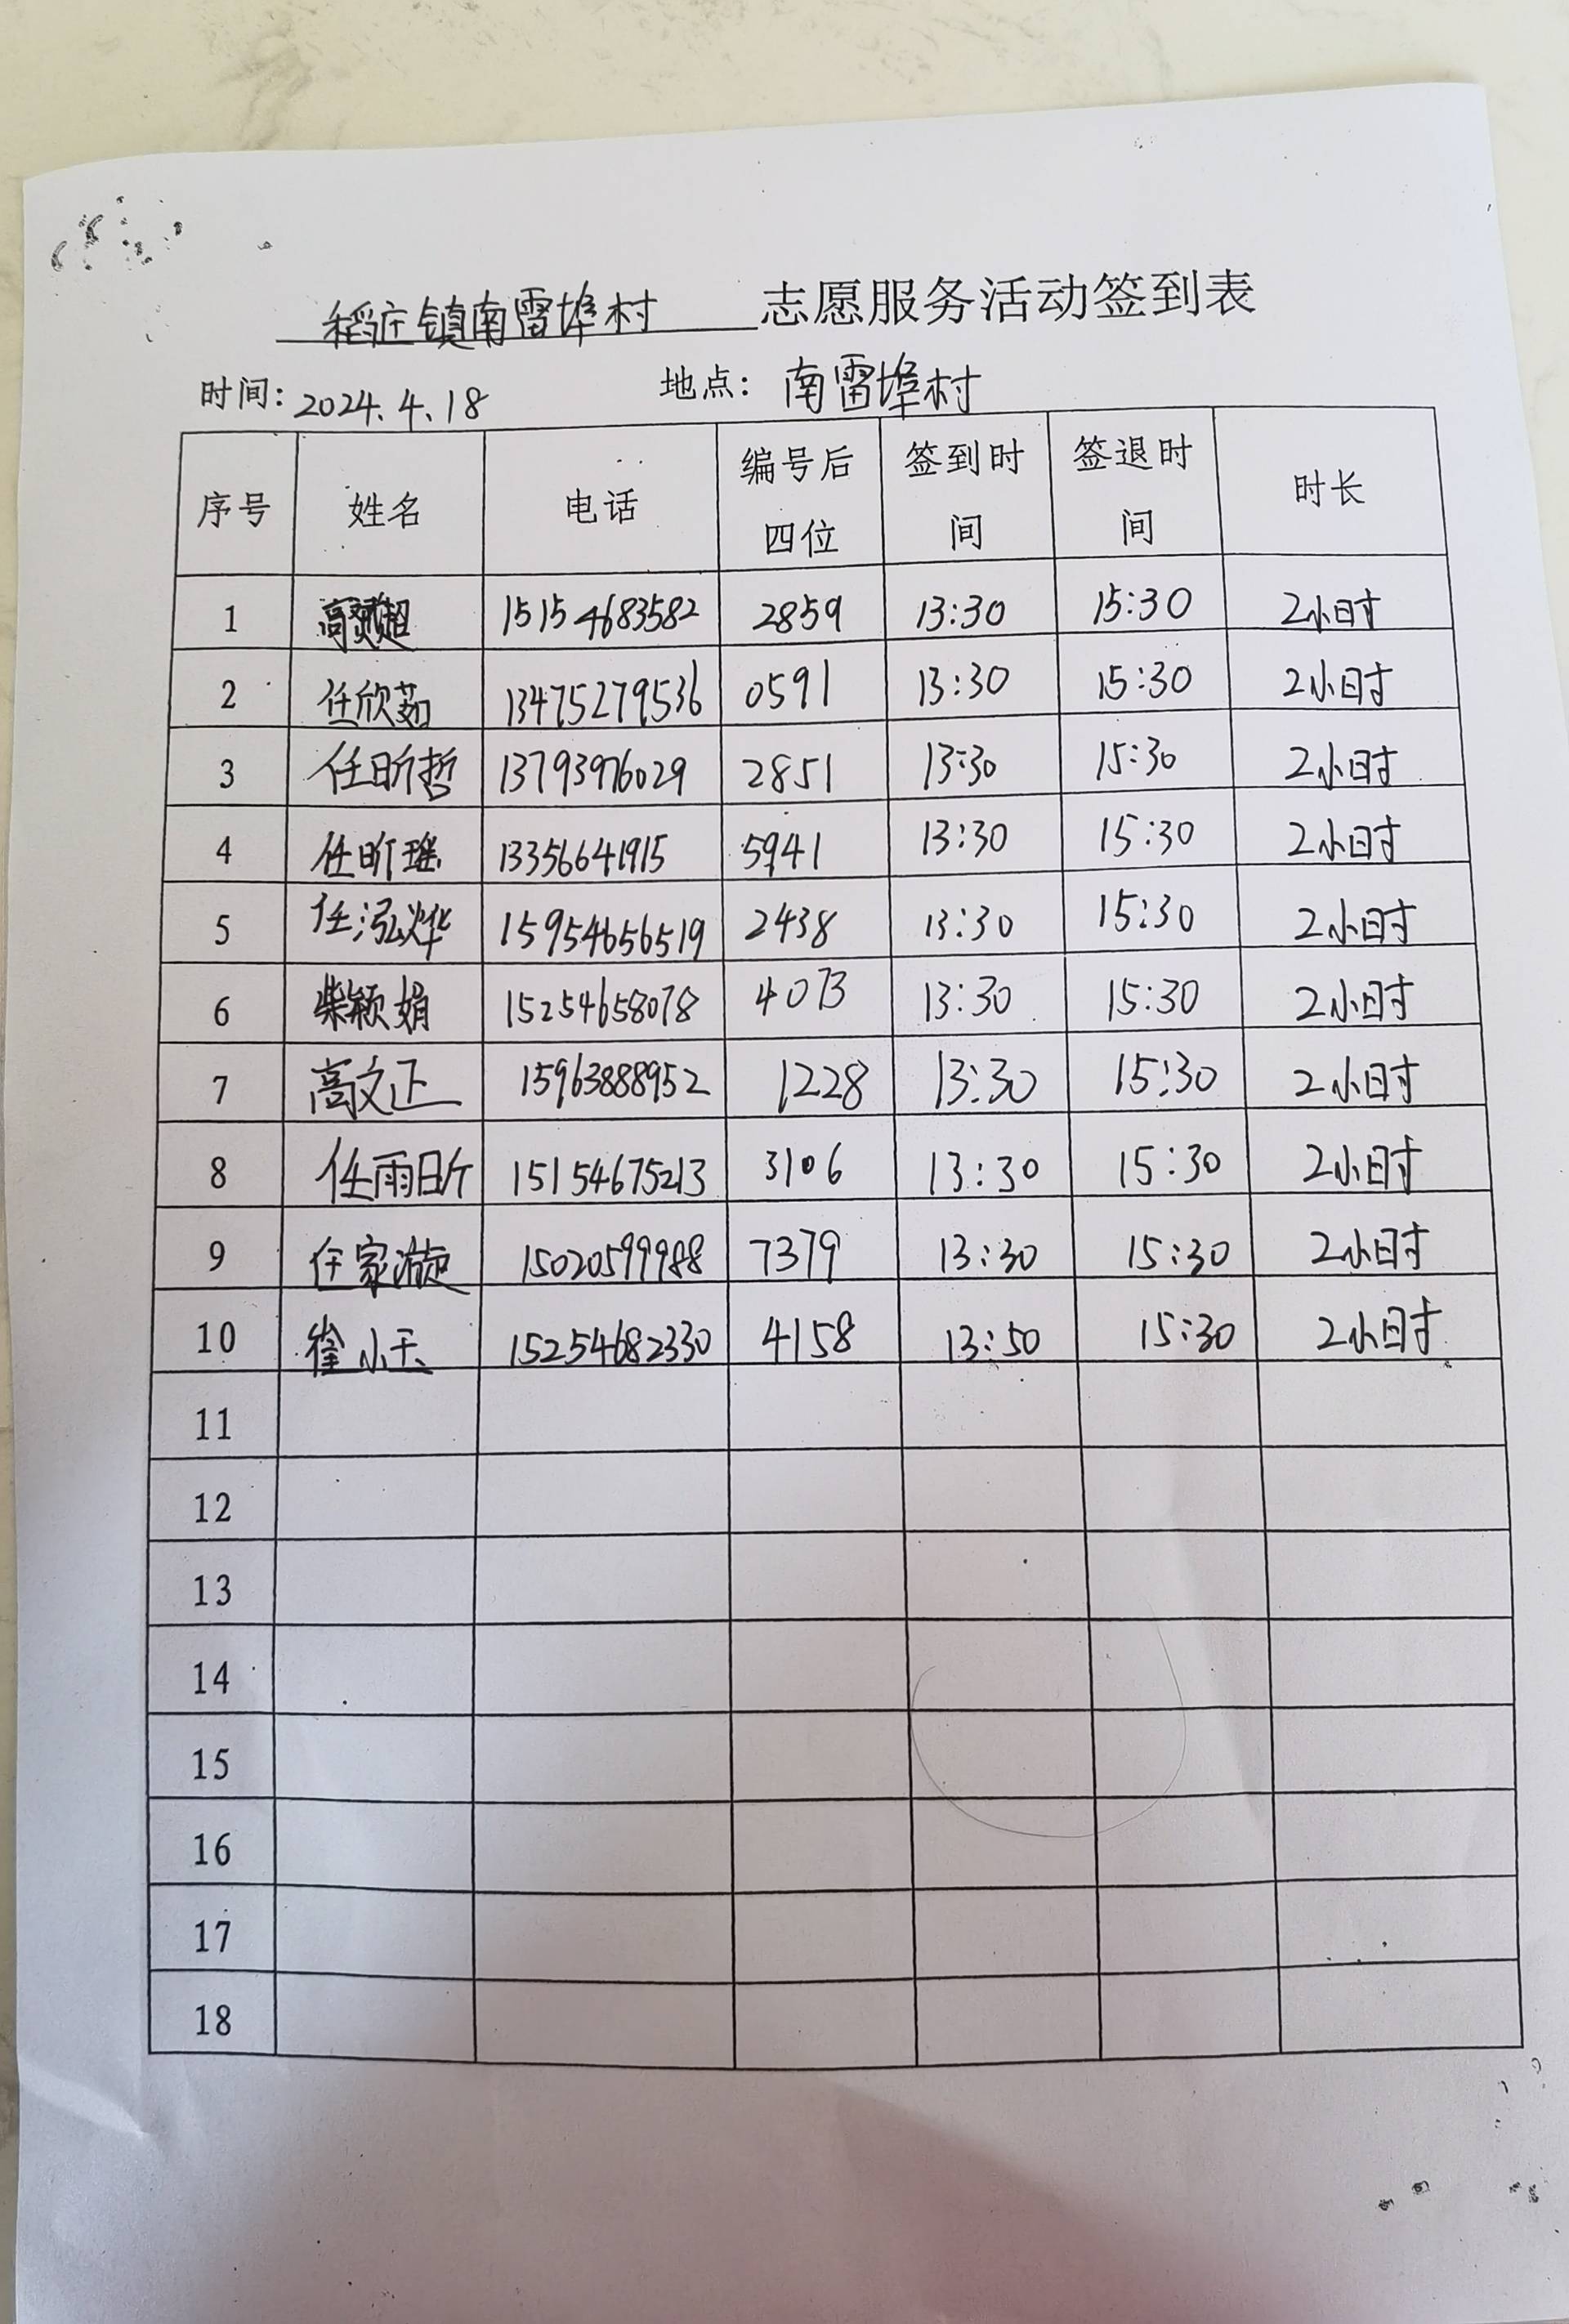 稻庄镇南雷埠村 志愿服务活动签到表
时间: 2024.4.18 地点: 南雷埠村
序号 姓名 电话 编号后四位 签到时间 签退时间 时长
1 15154683582 2859 13:30 15:30 2小时
2 任欣茹 13475279536 0591 13:30 15:30 2小时
3 任昕哲 13793976029 2851 13:30 15:30 2小时
4 任昕瑶 13356641915 5941 13:30 15:30 2小时
5 任泓烨 15954656519 2438 13:30 15:30 2小时
6 柴颖娟 15254658078 4073 13:30 15:30 2小时
7 高文正 15963888952 1228 13:30 15:30 2小时
8 任雨昕 15154675213 3106 13:30 15:30 2小时
9 任家漩 15020599988 7379 13:30 15:30 2小时
10 15254682330 4158 13:50 15:30 2小时
11
12
13
14
15
16
17
18